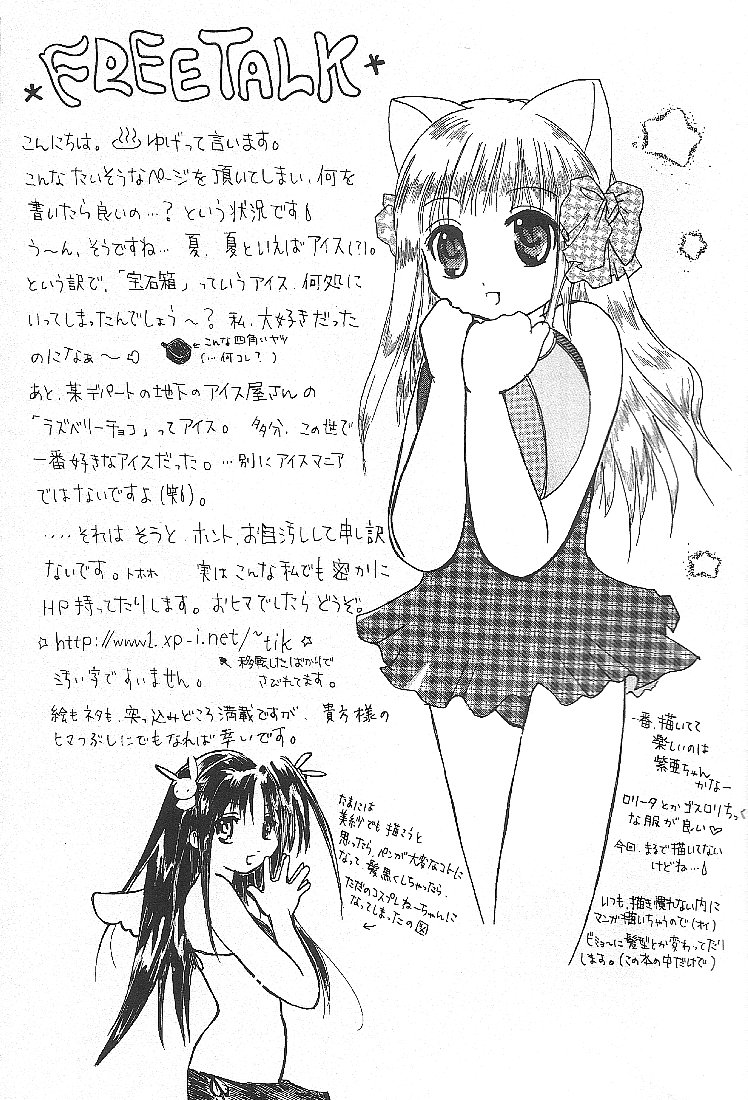 FREE TALK
こんにちは。♨ゆげって言います。
こんなたいそうなページを頂いてしまい、何を
書いたら良いの…？という状況です
う〜ん、そうですね… 夏、夏といえばアイス(?!)。
という訳で、「宝石箱」っていうアイス、何処に
いってしまったんでしょう〜？私、大好きだった
のになぁ〜
←こんな四角いヤツ
(…何コレ？)
あと、某デパートの地下のアイス屋さんの
「ラズベリーチョコ」ってアイス。多分、この世で
一番好きなアイスだった。…別にアイスマニア
ではないですよ(笑)。
‥‥それはそうと、ホント、お目汚しして申し訳
ないです。トホホ 実はこんな私でも密かに
HP持ってたりします。おヒマでしたらどうぞ。
☆http://www1.xp-i.net/~tik☆
汚い字ですいません。
移転したばかりで
さびれてます。
絵もネタも、突っ込みどころ満載ですが、貴方様の
ヒマつぶしにでもなれば幸いです。
たまには
美紗でも描こうと
思ったら、ペンが大変なコトに
なって、髪黒くしちゃったら、
ただのコスプレねーちゃんに
なってしまったの図
一番、描いてて
楽しいのは
紫亜ちゃん
かなー
ロリータとかゴスロリちっく
な服が良い♡
今回、まるで描いてない
けどね…
いつも、描き慣れない内に
マンガ描いちゃうので(オイ)
ビミョーに髪型とか変わってたり
します。(この本の中だけで)